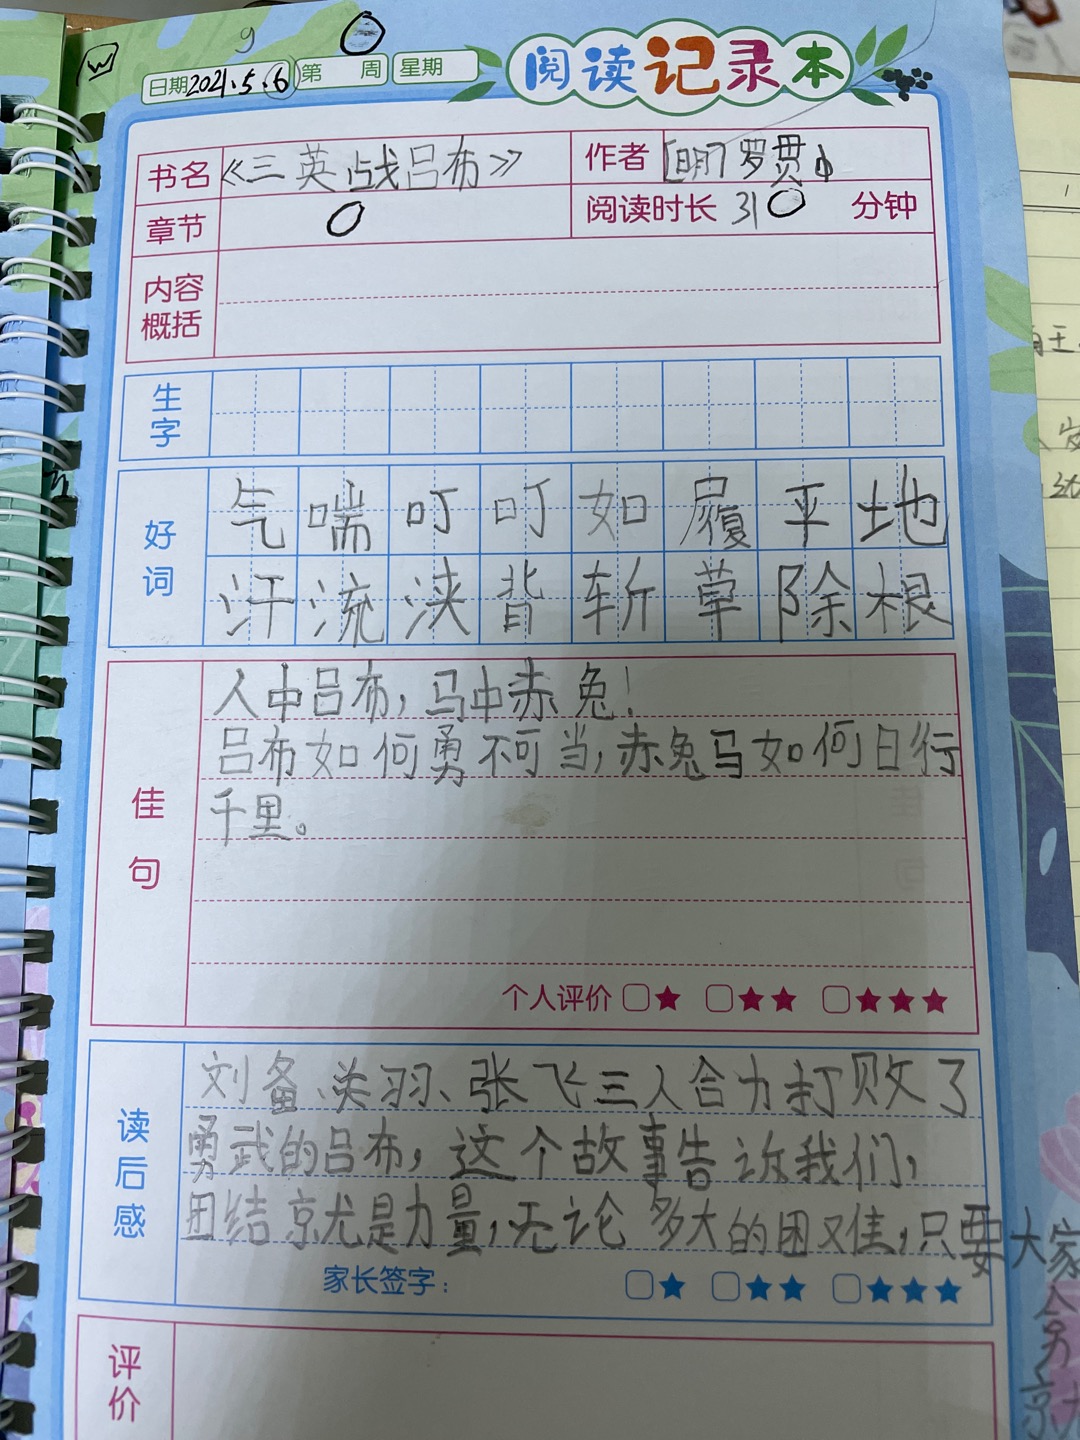 阅读记录本
日期2021.5.6 第 周 星期
书名 《三英战吕布》 作者 [明]罗贯中
章节 0 阅读时长 310 分钟
内容
概括
生字
好词
气喘叮叮如履平地
汗流浃背斩草除根
佳句
人中吕布，马中赤兔！
吕布如何勇不可当，赤兔马如何日行
千里。
个人评价 ★ ★★ ★★★
读后感
刘备、关羽、张飞三人合力打败了
勇武的吕布，这个故事告诉我们，
团结就是力量，无论多大的困难，只要大家
家长签字： ★ ★★ ★★★
评价